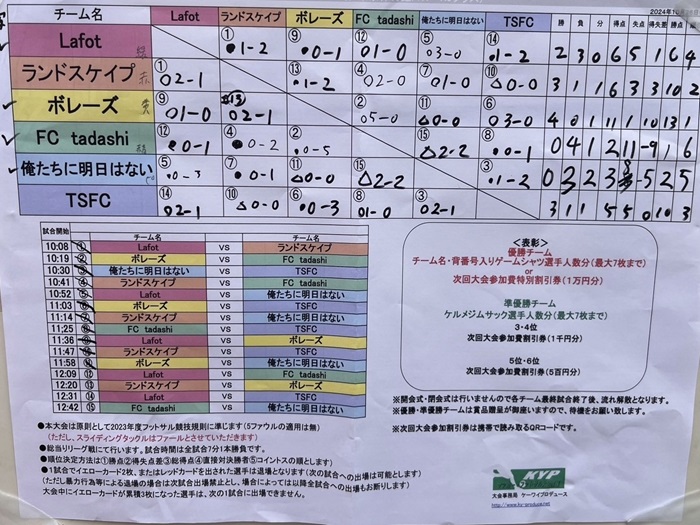 2024年10月
チーム名 Lafot ランドスケイプ ボレーズ FC tadashi 俺たちに明日はない TSFC 勝 負 分 得点 失点 得失差 勝点
Lafot ①●1-2 ⑨●0-1 ⑫○1-0 ⑤○3-0 ⑭●1-2 2 3 0 6 5 1 6 4
ランドスケイプ ①○2-1 ⑬●1-2 ④○2-0 ⑦○1-0 ⑩△0-0 3 1 1 6 3 3 10 2
ボレーズ ⑨○1-0 ⑬○2-1 ②○5-0 ⑪△0-0 ⑥○3-0 4 0 1 11 1 10 13 1
FC tadashi ⑫●0-1 ④●0-2 ②●0-5 ⑮△2-2 ⑧●0-1 0 4 1 2 11 -9 1 6
俺たちに明日はない ⑤●0-3 ⑦●0-1 ⑪△0-0 ⑮△2-2 ③●1-2 0 3 2 3 8 -5 2 5
TSFC ⑭○2-1 ⑩△0-0 ⑥●0-3 ⑧○1-0 ③○2-1 3 1 1 5 5 0 10 3
試合開始 チーム名 VS チーム名
10:08 ① Lafot VS ランドスケイプ
10:19 ② ボレーズ VS FC tadashi
10:30 ③ 俺たちに明日はない VS TSFC
10:41 ④ ランドスケイプ VS FC tadashi
10:52 ⑤ Lafot VS 俺たちに明日はない
11:03 ⑥ ボレーズ VS TSFC
11:14 ⑦ ランドスケイプ VS 俺たちに明日はない
11:25 ⑧ FC tadashi VS TSFC
11:36 ⑨ Lafot VS ボレーズ
11:47 ⑩ ランドスケイプ VS TSFC
11:58 ⑪ ボレーズ VS 俺たちに明日はない
12:09 ⑫ Lafot VS FC tadashi
12:20 ⑬ ランドスケイプ VS ボレーズ
12:31 ⑭ Lafot VS TSFC
12:42 ⑮ FC tadashi VS 俺たちに明日はない
<表彰>
優勝チーム
チーム名・背番号入りゲームシャツ選手人数分(最大7枚まで)
or
次回大会参加費特別割引券(1万円分)
準優勝チーム
ケルメジムサック選手人数分(最大7枚まで)
3・4位
次回大会参加費割引券(1千円分)
5位・6位
次回大会参加費割引券(5百円分)
※開会式・閉会式は行いませんので各チーム最終試合終了後、流れ解散となります。
※優勝・準優勝チームは賞品贈呈が御座いますので、待機をお願い致します。
※次回大会参加費割引券は携帯で読み取るQRコードです。
●本大会は原則として2023年度フットサル競技規則に準じます(5ファウルの適用は無)
(ただし、スライディングタックルはファールとさせていただきます)
●総当りリーグ戦にて行います。試合時間は全試合7分1本勝負です。
●順位決定方法は①勝点②得失点差③総得点④直接対決勝者⑤コイントスの順とします。
●1試合でイエローカード2枚、またはレッドカードを出された選手は退場となります(次の試合への出場は可能とします)
(ただし暴力行為等による退場の場合は次試合出場禁止とし、場合によっては以降全試合への出場もお断りします)
大会中にイエローカードが累積3枚になった選手は、次の1試合に出場できません。
KYP
大会事務局 ケーワイプロデュース
http://www.ky-produce.net